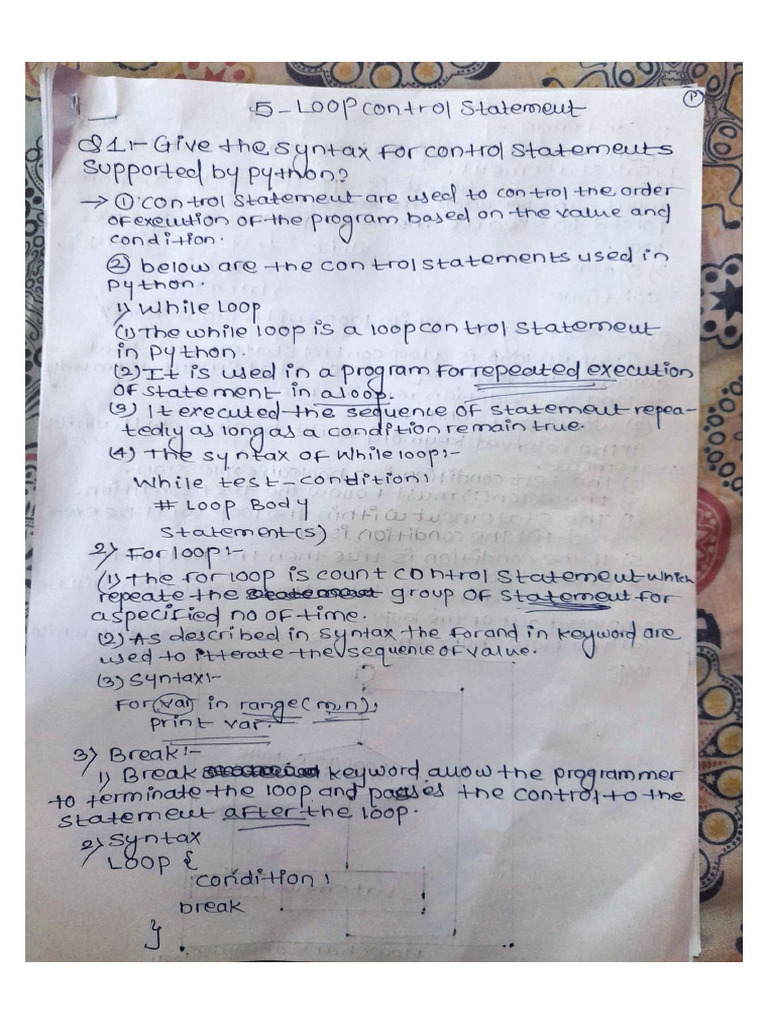 P
5-Loop control Statement
Q1:- Give the syntax for control statements
supported by python?
→ ① control statement are used to control the order
of execution of the program based on the value and
condition.
② below are the control statements used in
python.
1) While Loop
(1) The while loop is a loop control statement
in python.
(2) It is used in a program for repeated execution
of statement in a loop.
(3) It executed the sequence of statement repea-
tedly as long as a condition remain true.
(4) The syntax of while loop:-
While test-condition:
# Loop Body
statement(s)
2) For loop:-
(1) The for loop is count control statement which
repeate the group of statement for
a specified no of time.
(2) As described in syntax the for and in keyword are
used to itterate the sequence of value.
(3) Syntax:-
For var in range(m,n):
print var.
3) Break:-
1) Break keyword allow the programmer
to terminate the loop and passes the control to the
statement after the loop.
2) Syntax
Loop {
condition:
break
}